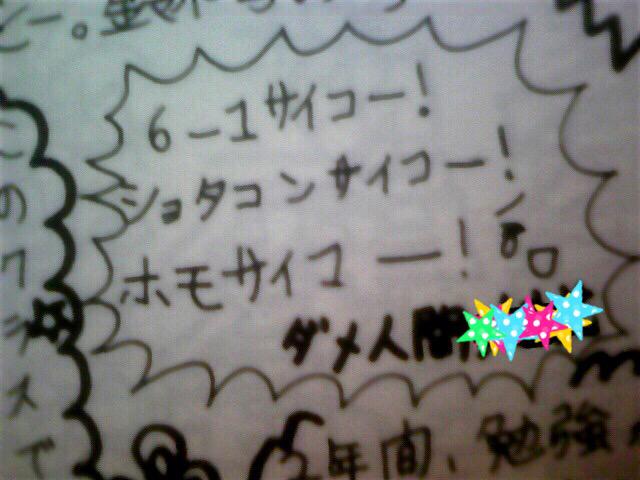 6-1サイコー!
ショタコンサイコー!
ホモサイコー!
ダメ人間
2年間、勉強
このクラスで